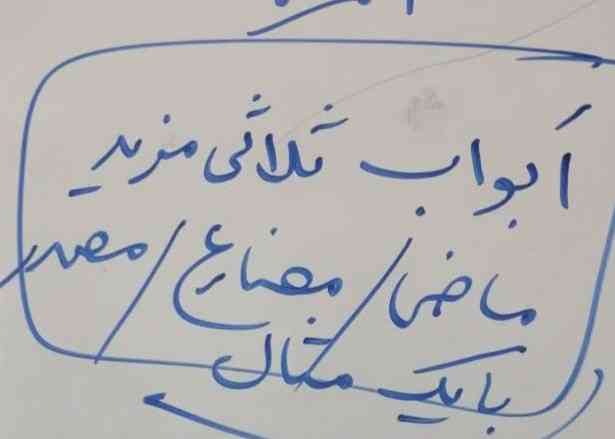 أبواب ثلاثی مزید
ماضی / مضارع / مصدر
با یک مثال